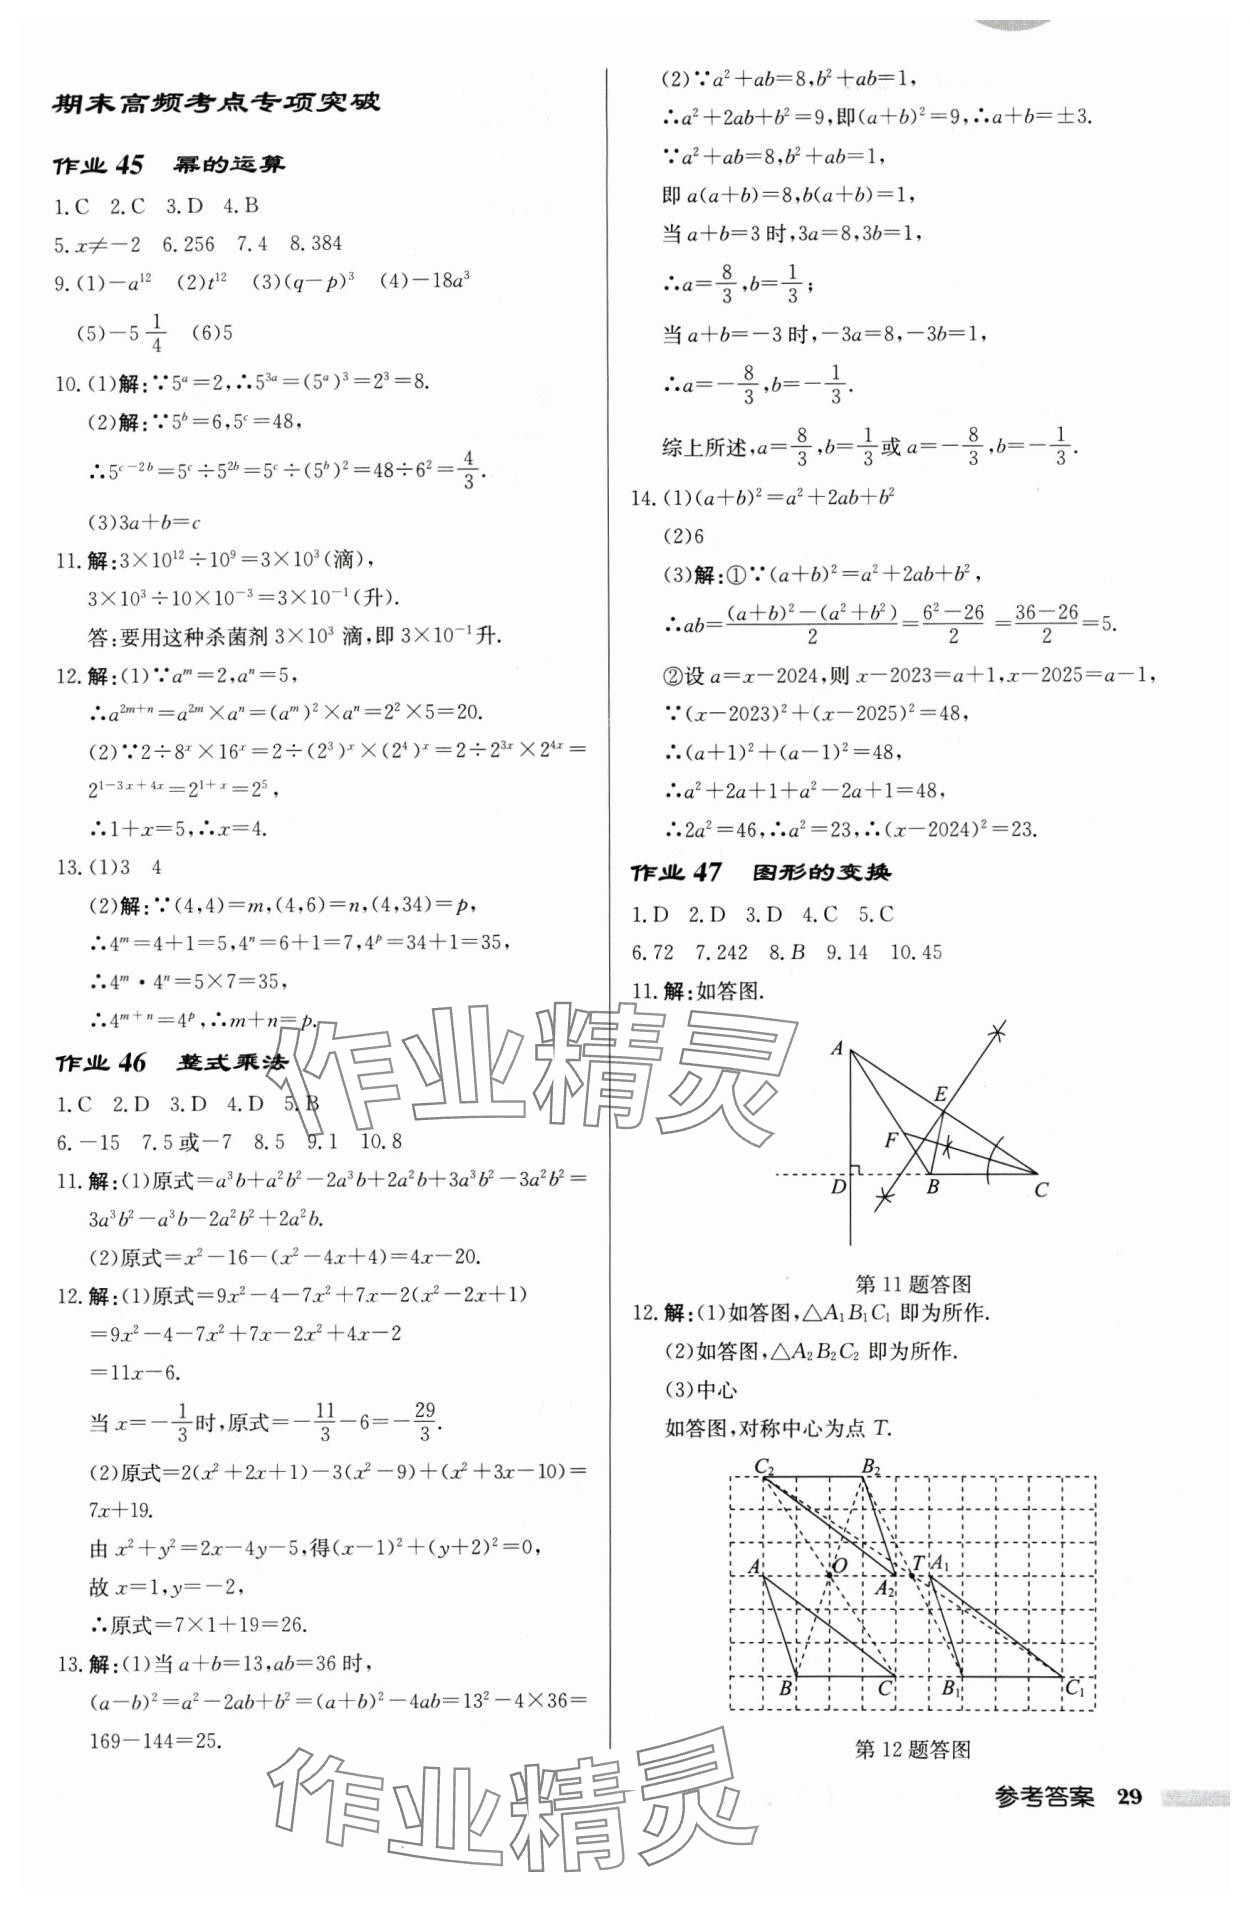 期末高频考点专项突破
作业 45 幂的运算
1.C 2.C 3.D 4.B
5.x≠-2 6.256 7.4 8.384
9.(1)-a¹² (2)t¹² (3)(q-p)³ (4)-18a³
(5)-5 1/4 (6)5
10.(1)解:∵5ᵃ=2,∴5³ᵃ=(5ᵃ)³=2³=8.
(2)解:∵5ᵇ=6,5ᶜ=48,
∴5ᶜ⁻²ᵇ=5ᶜ÷5²ᵇ=5ᶜ÷(5ᵇ)²=48÷6²=4/3.
(3)3a+b=c
11.解:3×10¹²÷10⁹=3×10³(滴),
3×10³÷10×10⁻³=3×10⁻¹(升).
答:要用这种杀菌剂 3×10³ 滴,即 3×10⁻¹升.
12.解:(1)∵aᵐ=2,aⁿ=5,
∴a²ᵐ⁺ⁿ=a²ᵐ×aⁿ=(aᵐ)²×aⁿ=2²×5=20.
(2)∵2÷8ˣ×16ˣ=2÷(2³)ˣ×(2⁴)ˣ=2÷2³ˣ×2⁴ˣ=
2¹⁻³ˣ⁺⁴ˣ=2¹⁺ˣ=2⁵,
∴1+x=5,∴x=4.
13.(1)3 4
(2)解:∵(4,4)=m,(4,6)=n,(4,34)=p,
∴4ᵐ=4+1=5,4ⁿ=6+1=7,4ᵖ=34+1=35,
∴4ᵐ·4ⁿ=5×7=35,
∴4ᵐ⁺ⁿ=4ᵖ,∴m+n=p.
作业 46 整式乘法
1.C 2.D 3.D 4.D 5.B
6.-15 7.5或-7 8.5 9.1 10.8
11.解:(1)原式=a³b+a²b²-2a³b+2a²b+3a³b²-3a²b²=
3a³b²-a³b-2a²b²+2a²b.
(2)原式=x²-16-(x²-4x+4)=4x-20.
12.解:(1)原式=9x²-4-7x²+7x-2(x²-2x+1)
=9x²-4-7x²+7x-2x²+4x-2
=11x-6.
当 x=-1/3时,原式=-11/3-6=-29/3.
(2)原式=2(x²+2x+1)-3(x²-9)+(x²+3x-10)=
7x+19.
由 x²+y²=2x-4y-5,得(x-1)²+(y+2)²=0,
故 x=1,y=-2,
∴原式=7×1+19=26.
13.解:(1)当 a+b=13,ab=36 时,
(a-b)²=a²-2ab+b²=(a+b)²-4ab=13²-4×36=
169-144=25.
(2)∵a²+ab=8,b²+ab=1,
∴a²+2ab+b²=9,即(a+b)²=9,∴a+b=±3.
∵a²+ab=8,b²+ab=1,
即 a(a+b)=8,b(a+b)=1,
当 a+b=3 时,3a=8,3b=1,
∴a=8/3,b=1/3;
当 a+b=-3 时,-3a=8,-3b=1,
∴a=-8/3,b=-1/3.
综上所述,a=8/3,b=1/3或 a=-8/3,b=-1/3.
14.(1)(a+b)²=a²+2ab+b²
(2)6
(3)解:①∵(a+b)²=a²+2ab+b²,
∴ab=((a+b)²-(a²+b²))/2=(6²-26)/2=(36-26)/2=5.
②设 a=x-2024,则 x-2023=a+1,x-2025=a-1,
∵(x-2023)²+(x-2025)²=48,
∴(a+1)²+(a-1)²=48,
∴a²+2a+1+a²-2a+1=48,
∴2a²=46,∴a²=23,∴(x-2024)²=23.
作业 47 图形的变换
1.D 2.D 3.D 4.C 5.C
6.72 7.242 8.B 9.14 10.45
11.解:如答图.
A
E
F
D B C
第 11 题答图
12.解:(1)如答图,△A₁B₁C₁ 即为所作.
(2)如答图,△A₂B₂C₂ 即为所作.
(3)中心
如答图,对称中心为点 T.
C₂ B₂
A O A₂ T A₁
B C B₁ C₁
第 12 题答图
参考答案 29
作业精灵
作业精灵